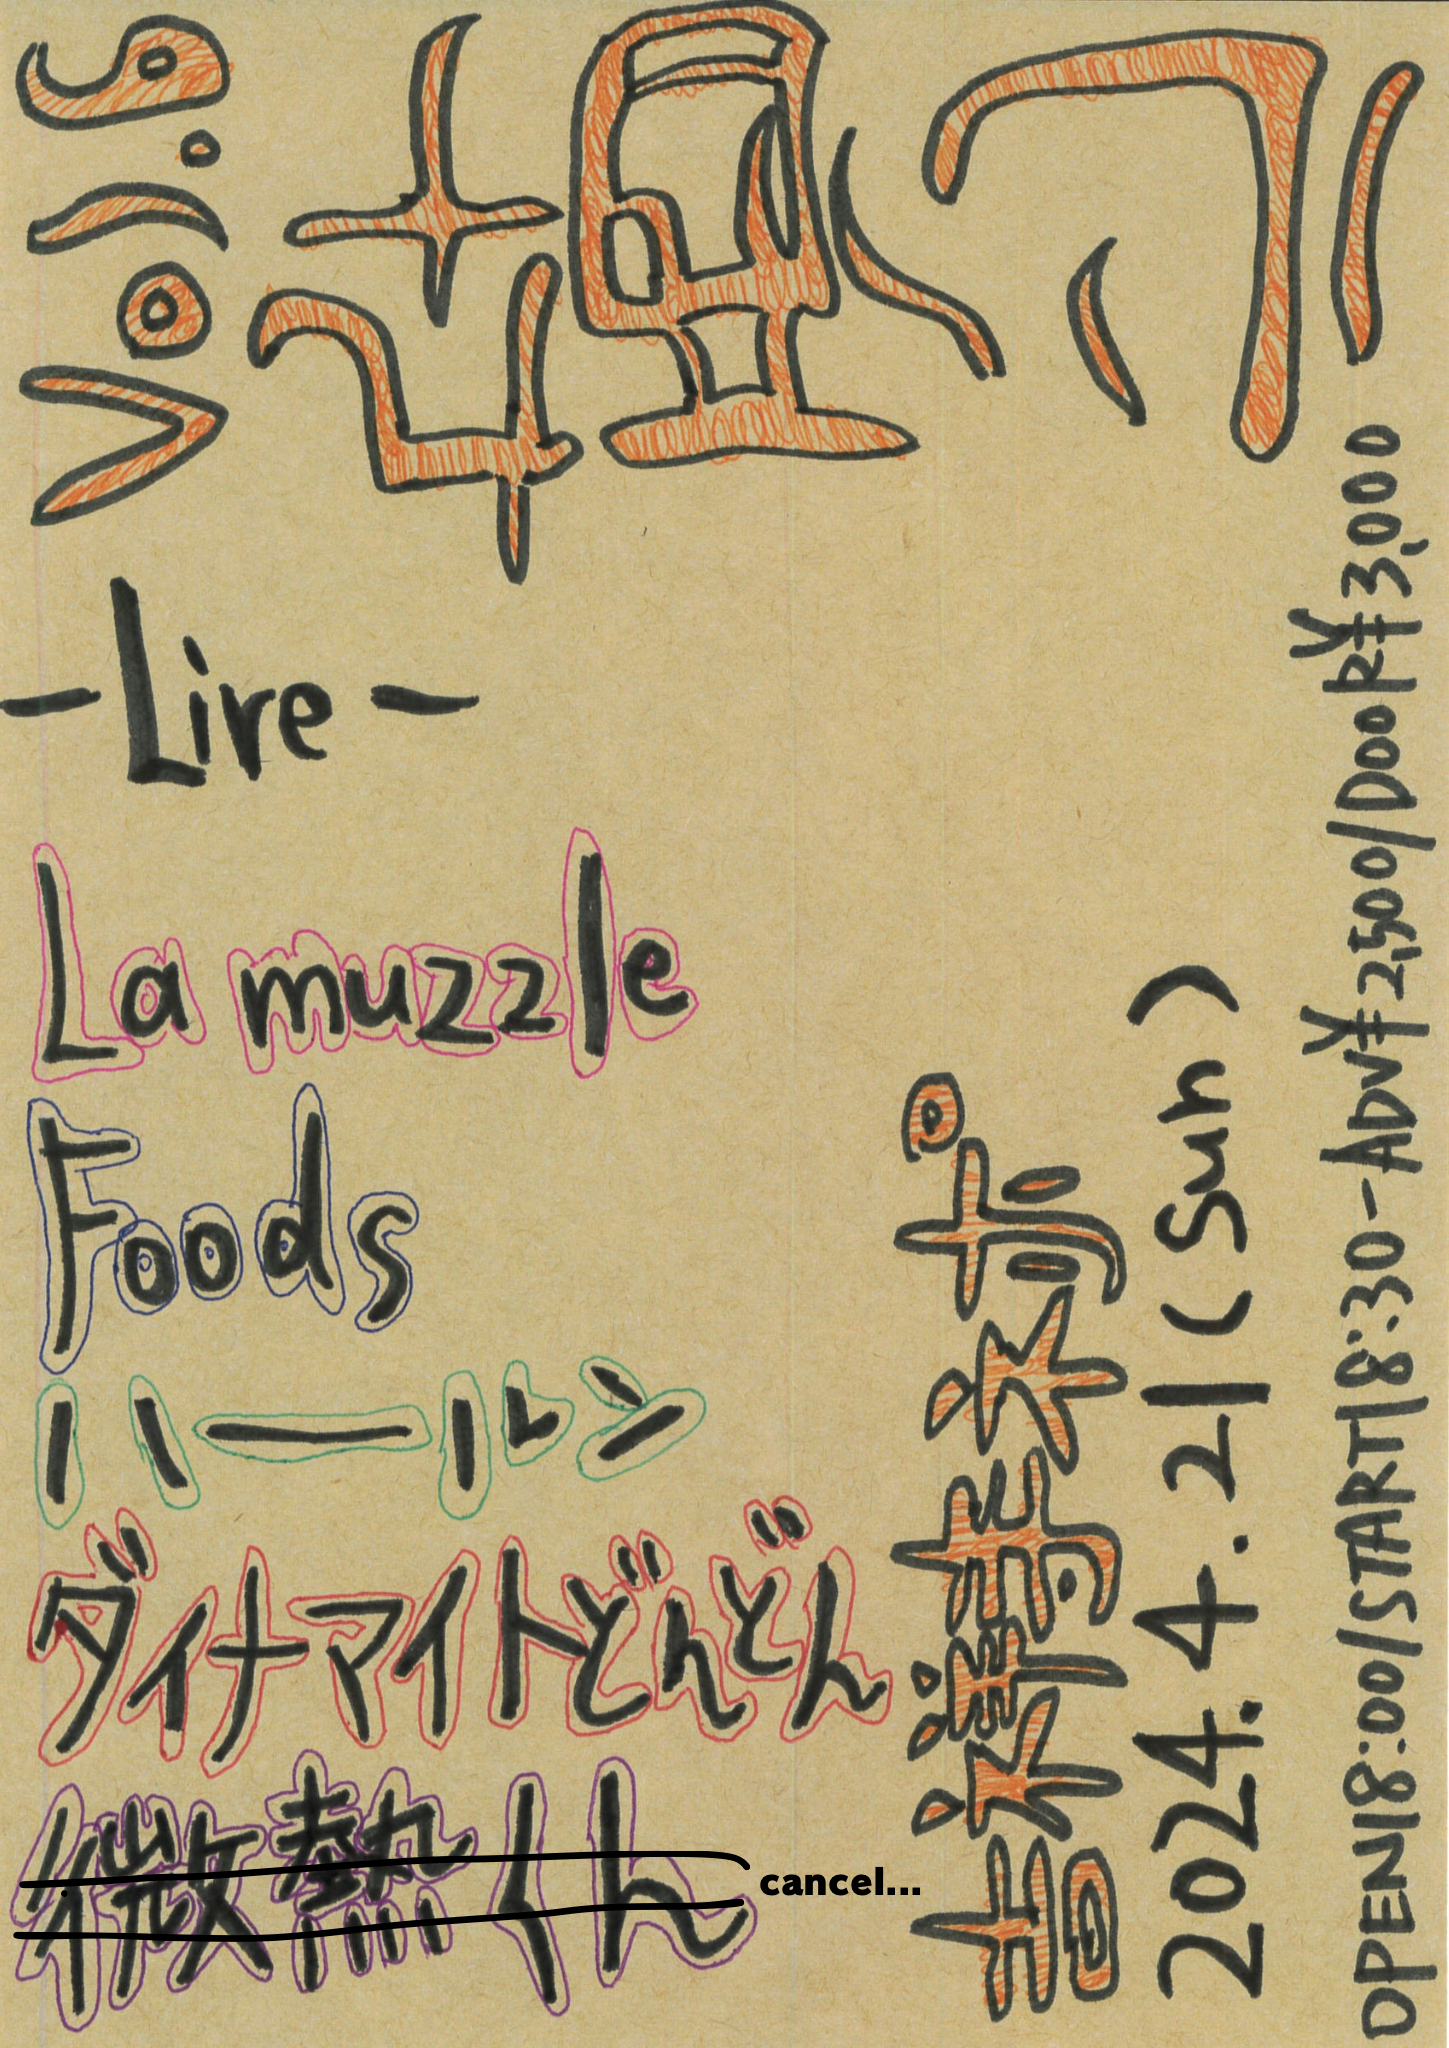 Vol.6
-Live-
La muzzle
Foods
ハールン
ダイナマイトどんどん
微熱くん
cancel...
吉祥寺ネポ
2024.4.21(Sun)
OPEN18:00/START18:30-ADV¥2,500/DOOR¥3,000